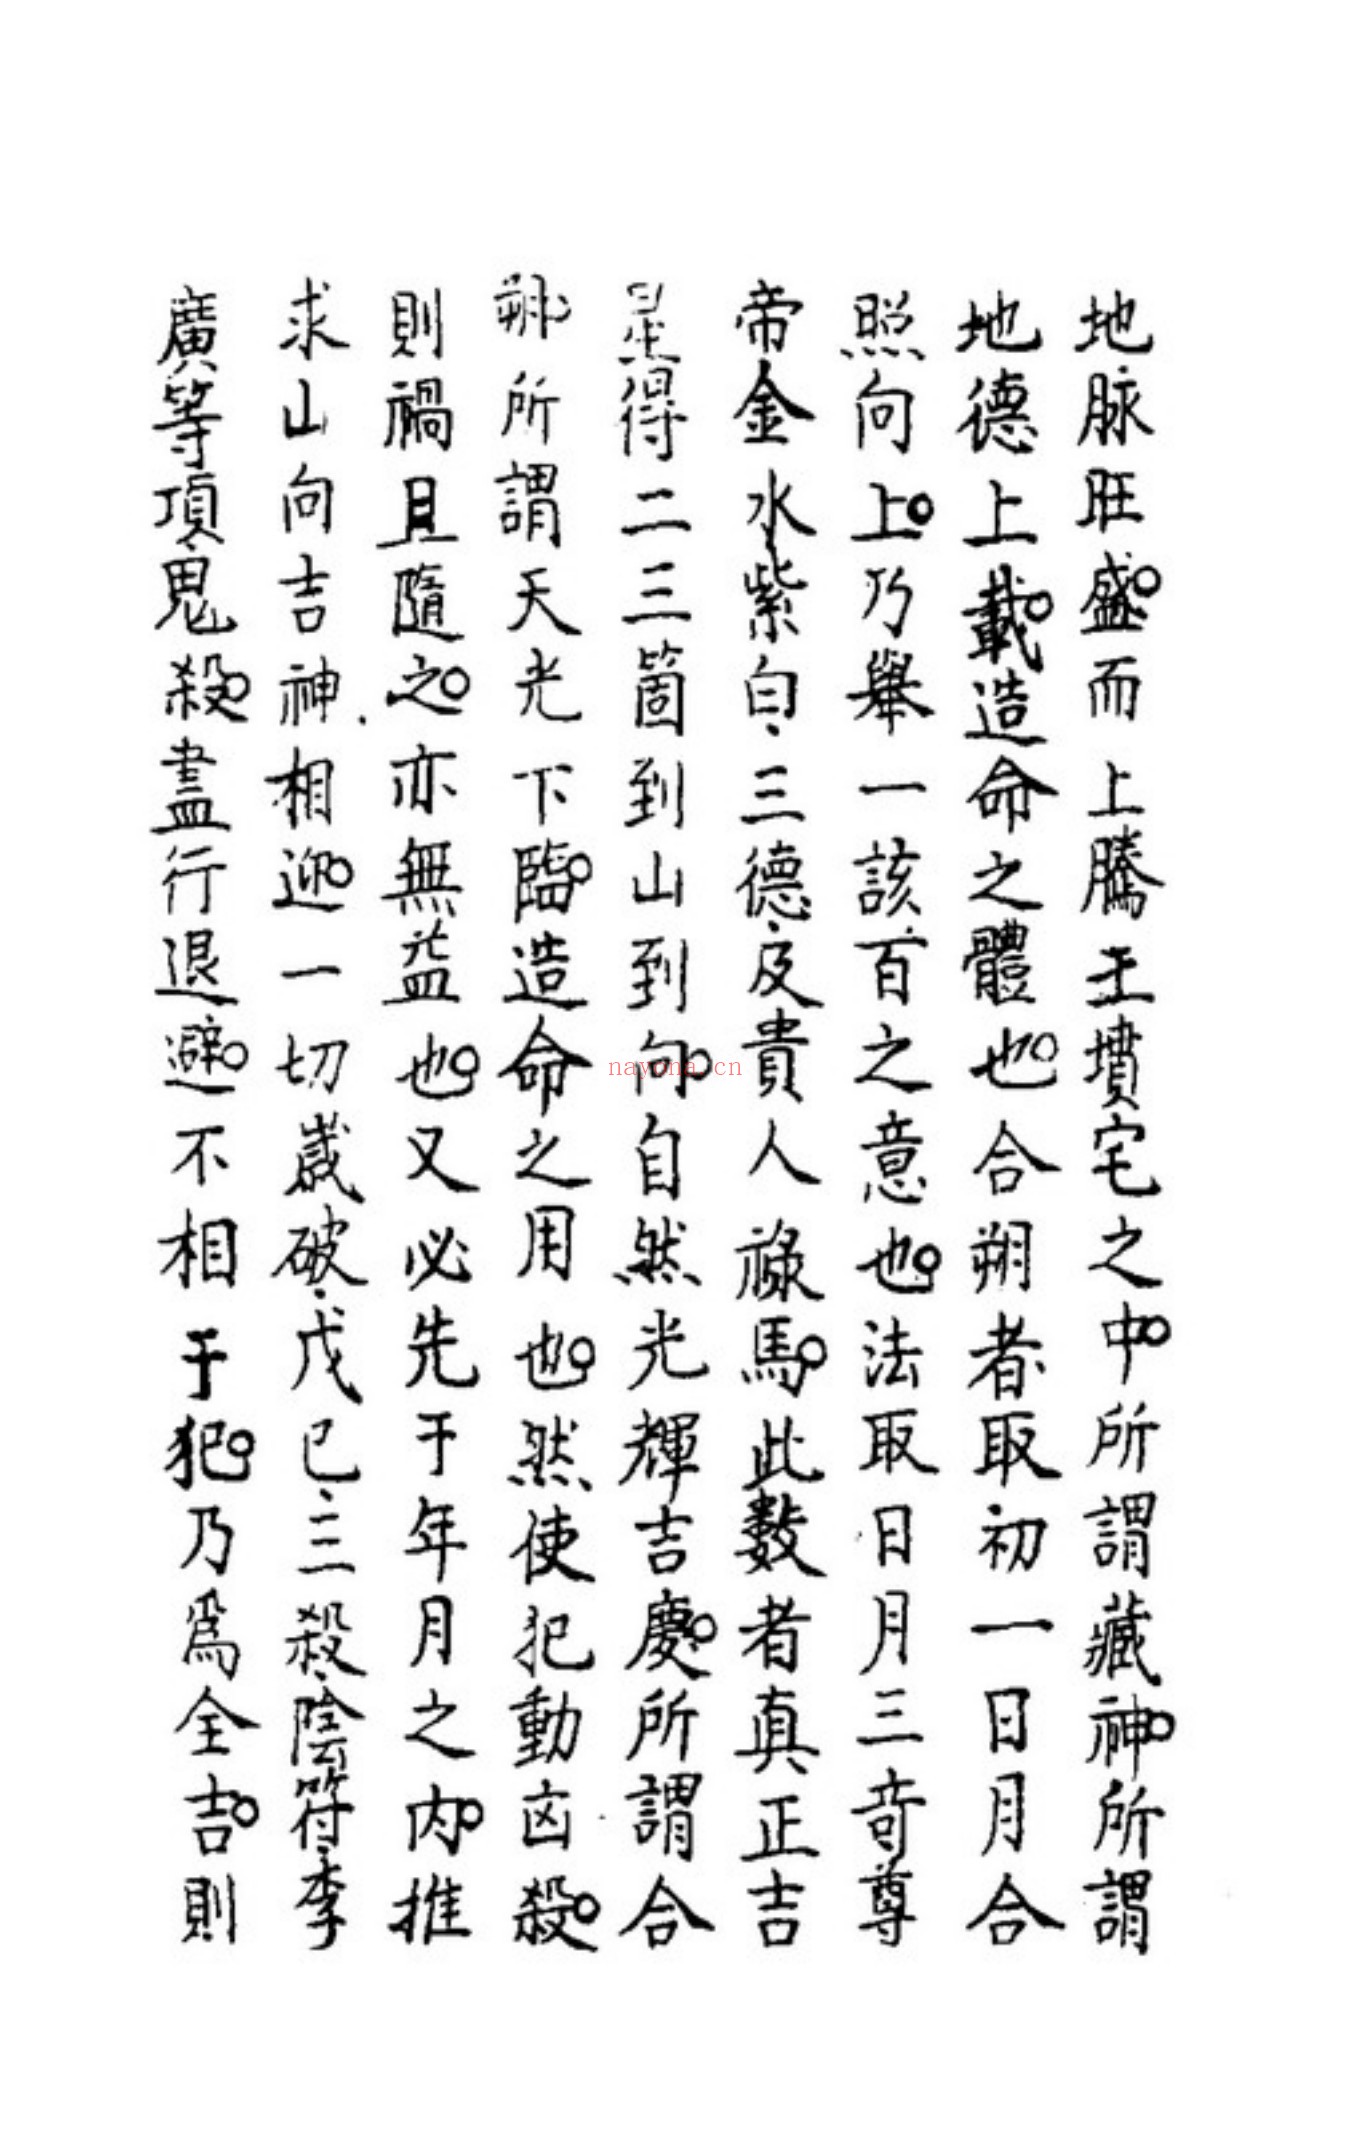 地脉旺盛。而上騰于墳宅之中。所謂藏神。所謂
地德上載。造命之體也。合朔者取初一日月合
照向上。乃舉一該百之意也。法取日月三奇尊
帝金水紫白、三德、及貴人祿馬。此数者真正吉
星得二三箇到山到向。自然光輝吉慶。所謂合
朔所謂天光下臨。造命之用也。然使犯動凶殺。
則禍且隨之。亦無益也。又必先于年月之内。推
求山向吉神相迎。一切歲破、戊己、三殺、陰符、李
廣等項鬼殺。盡行退避。不相干犯。乃為全吉。則
nayona.cn